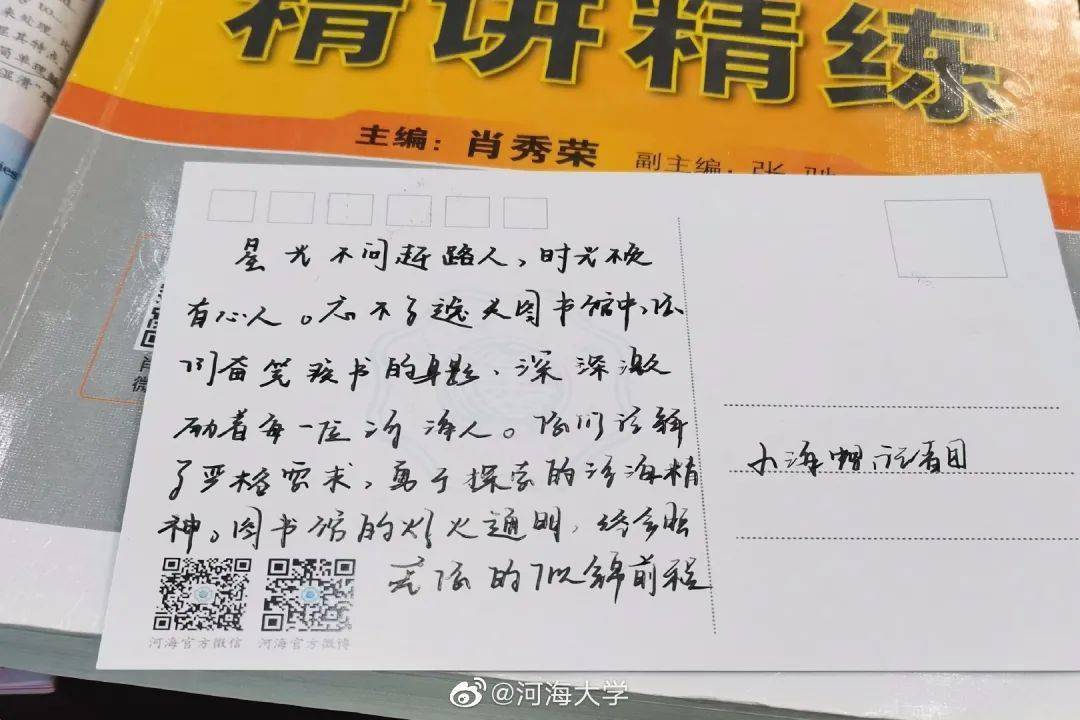 精讲精练
主编：肖秀荣 副主编：张
星光不问赶路人，时光不负
有心人。忘不了逸夫图书馆中，你
们奋笔疾书的身影，深深激
励着每一位河海人。你们诠释
了严格要求，勇于探索的河海精
神。图书馆的灯火通明，终会照
亮你的似锦前程
小海 记者团
河海官方微信 河海官方微博
@河海大学